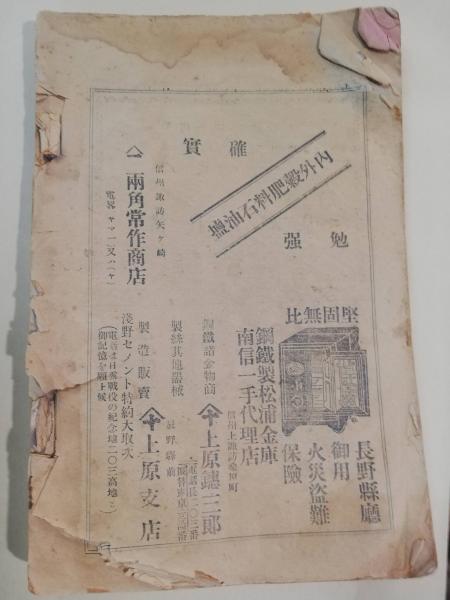 確實
勉强
內外穀肥料石油鹽
信州諏訪矢ヶ崎
兩角常作商店
堅固無比
長野縣廳
御用
火災盜難
保險
鋼鐵製松浦金庫
南信一手代理店
信州上諏訪桑原町
銅鐵諸金物商
製絲其他器械
製造販賣
上原鐵三郎
長野縣前
上原支店
淺野セメント特約大取次
御記憶を願上候